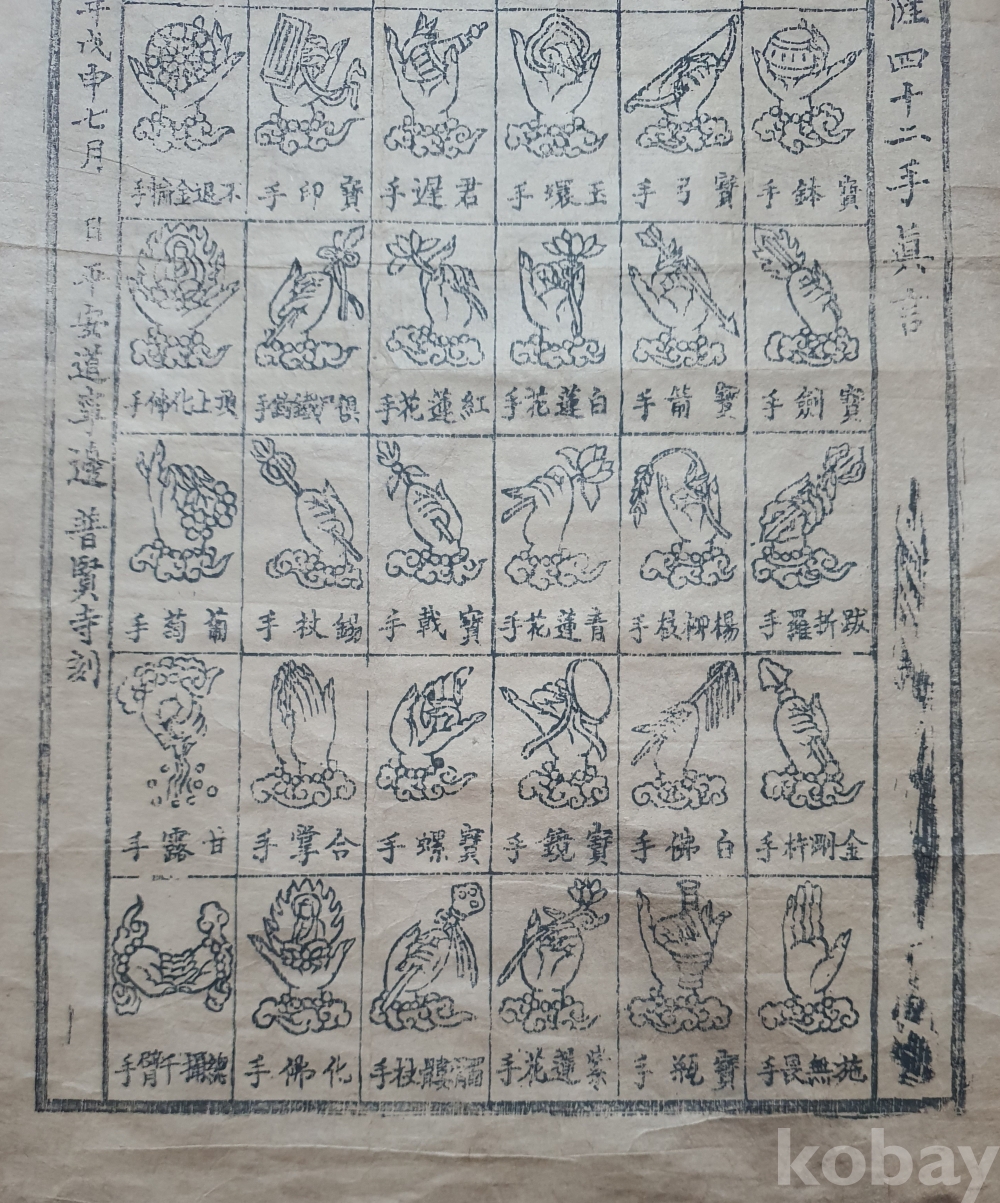 四十二手眞言
寶鉢手
寶弓手
玉環手
君遲手
寶印手
不退金輪手
寶劍手
寶箭手
白蓮花手
紅蓮花手
俱尸鐵鉤手
頂上化佛手
跋折羅手
楊柳枝手
青蓮花手
寶戟手
錫杖手
葡萄手
金剛杵手
白佛手
寶鏡手
寶螺手
合掌手
甘露手
施無畏手
寶瓶手
紫蓮花手
髑髏杖手
化佛手
總攝千臂手
年戊申七月 日 平安道寧邊 普賢寺刻
kobay